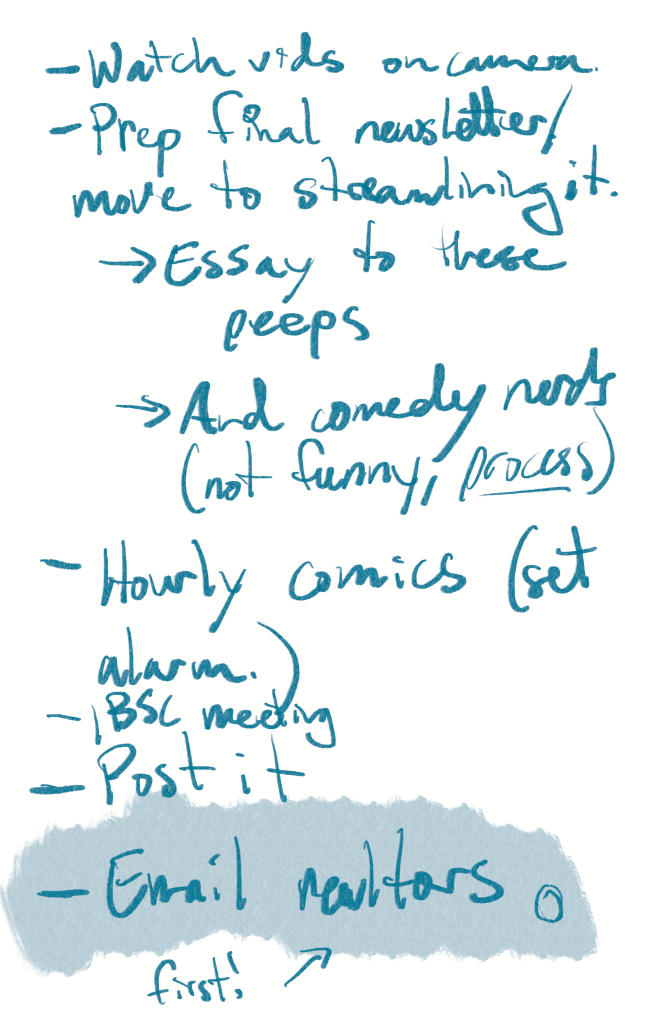 - Watch vids on camera.
- Prep final newsletter/
move to streamlining it.
→ Essay to these
peeps
→ And comedy nerds
(not funny, process)
- Hourly comics (set
alarm.)
- BSC meeting
- Post it
- Email
first!